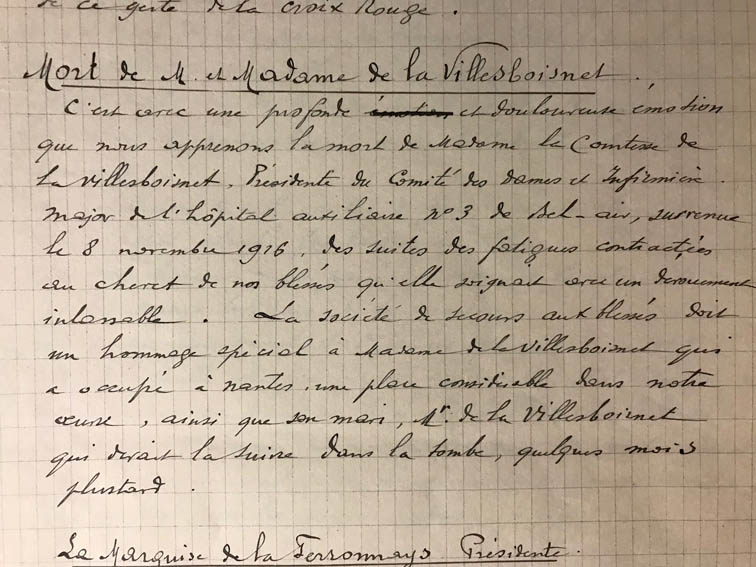 de ce geste de la Croix Rouge.
Mort de M. et Madame de la Villesboisnet.
C'est avec une profonde émotion et douloureuse émotion
que nous apprenons la mort de Madame la Comtesse de
la Villesboisnet, Présidente du Comité des Dames et Infirmière
major de l'hôpital auxiliaire nº 3 de Bel-air, survenue
le 8 novembre 1916, des suites des fatigues contractées
au chevet de nos blessés qu'elle soignait avec un dévouement
inlassable. La société de secours aux blessés doit
un hommage spécial à Madame de la Villesboisnet qui
a occupé à Nantes, une place considérable dans notre
œuvre, ainsi que son mari, Mr. de la Villesboisnet
qui devait la suivre dans la tombe, quelques mois
plustard.
La Marquise de la Ferronnays Présidente.